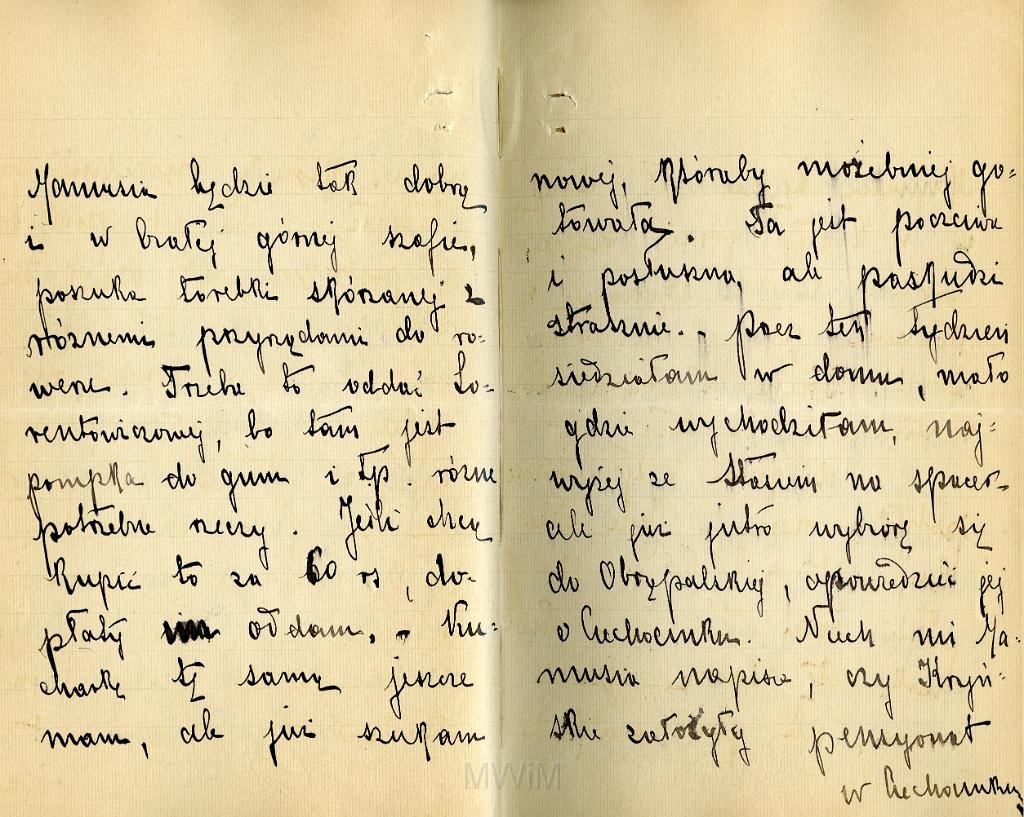 Mamusia będzie tak dobrą
i w białej górnej szafie,
poszuka torebki skórzanej z
różnemi przyrządami do ro-
weru. Trzeba to oddać Lo-
rentowiczowej, bo tam jest
pompka do gum i tp. różne
potrzebne rzeczy. Jeśli chcą
kupić to za 60 rs, do-
płaty oddam. - Ku-
charkę tę samą jeszcze
mam, ale już szukam
nowej, któraby możebniej go-
towała. Ta jest poczciwa
i posłuszna, ale paskudzi
strasznie. - Przez ten tydzień
siedziałam w domu, mało
gdzie wychodziłam, naj-
wyżej ze Stasiem na spacer
ale już jutro wybiorę się
do Obrępalskiej, opowiedzieć jej
o Ciechocinku. Niech mi Ma-
musia napisze, czy Kryń-
skie założyły pensyonat
w Ciechocinku
MWiM